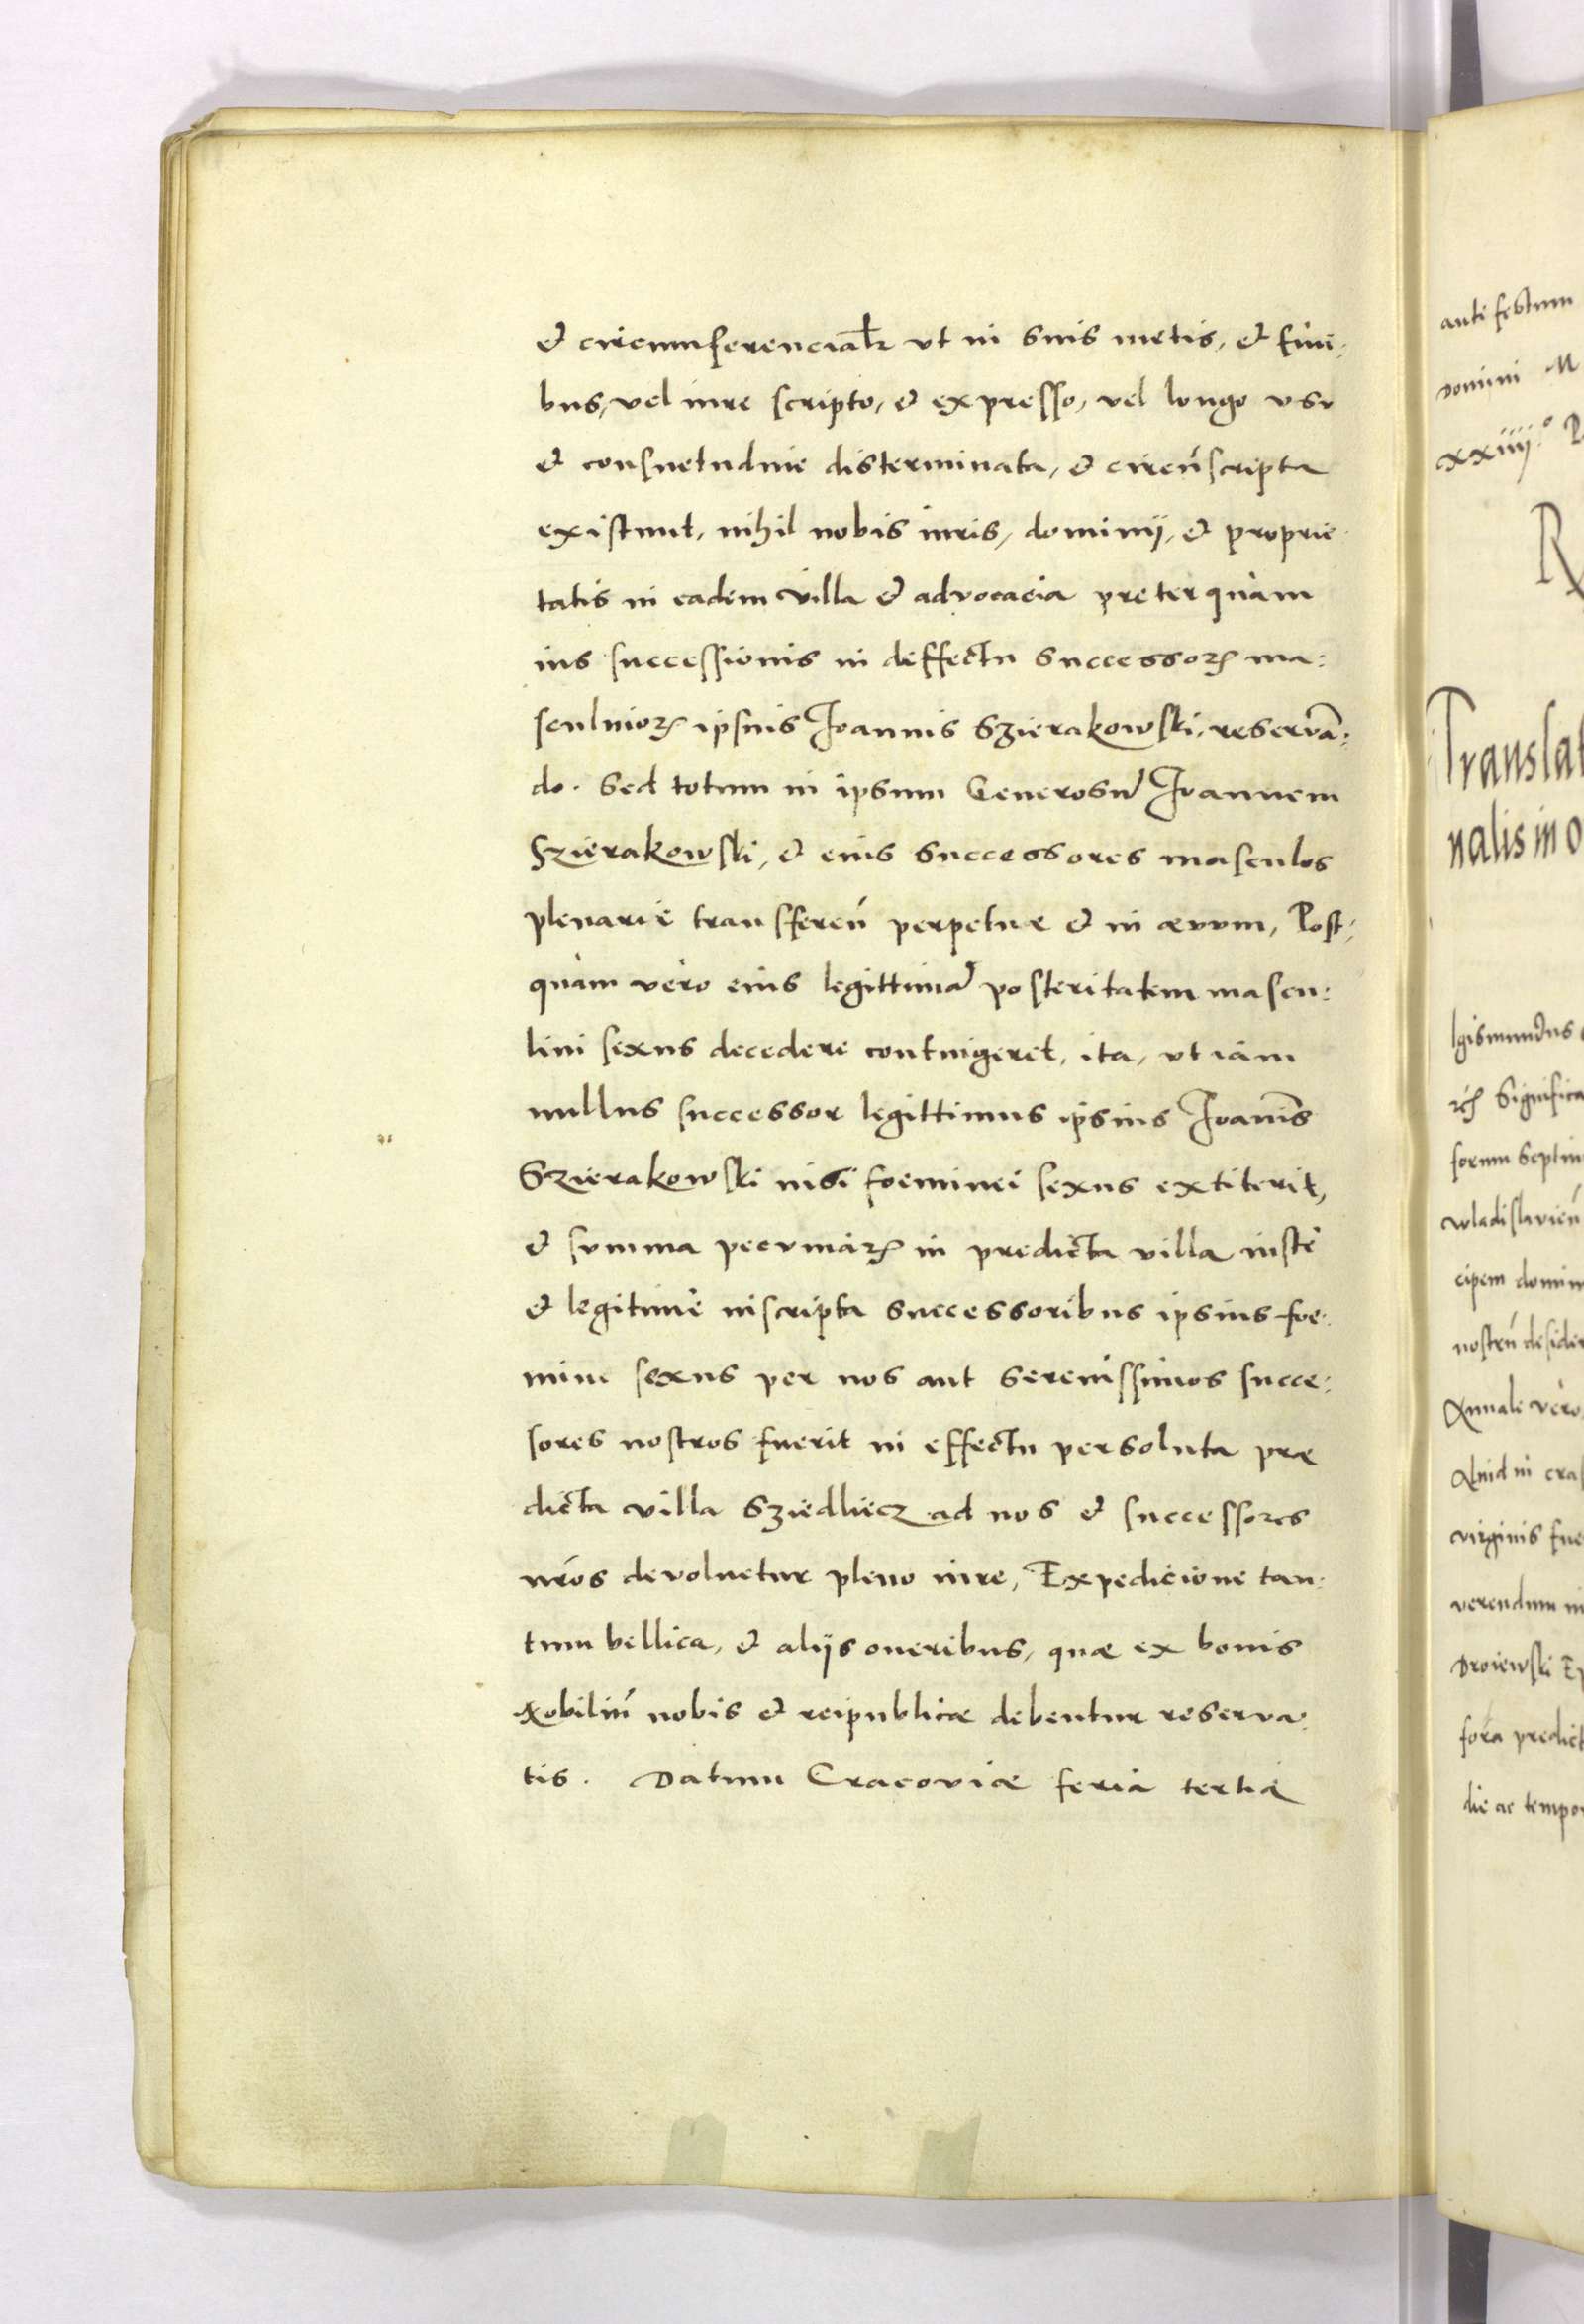 et circumferencialr ut in suis metis, et fini:
bus, vel iure scripto, et expresso, vel longo usu
et consuetudine disterminata, et circũscripta
existunt, nihil nobis iuris, dominij, et proprie
tatis in eadem villa et advocacia preterquam
ius successionis in deffectu successorꝝ ma:
sculniorꝝ ipsius Joannis Szierakowski, reservã:
do. Sed totum in ipsum Generosũ Joannem
Szierakowski, et eius successores masculos
plenarie transfereñ perpetuæ et in ævum, Post:
quàm vero eius legittimã posteritatem mascu:
lini sexus decedere contingeret, ita, ut iam
nullus successor legittimus ipsius Joanĩs
Szierakowski nisi foeminei sexus extiterit,
et summa pecuniarꝝ in predicta villa iuste
et legitime inscripta successoribus ipsius foe:
minei sexus per nos aut serenissimos succe:
sores nostros fuerit in effectu persoluta præ
dicta villa Sziedliecz ad nos et successores
nr̃os devoluetur pleno iure, Expedicione tan:
tum bellica, et alijs oneribus, quæ ex bonis
Nobiliũ nobis et reipublicæ debentur reserva:
tis. Datum Cracoviæ feria tertia
ante festum
domini M
xxiiij.º
R
Translat
nalis in o
Significa
forum Septim
wladislavieñ
cipem domin
nostrũ desider
Annale vero
Quid in cras
virginis fue
verendum in
Droiewski Ep
fora predict
die ac tempor